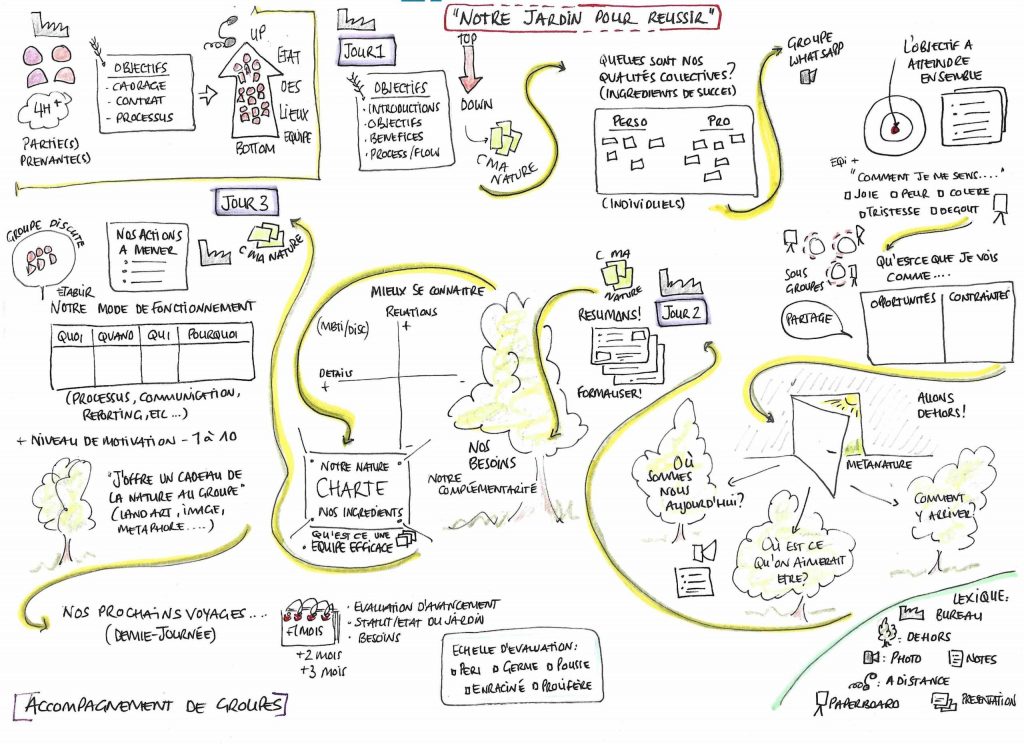 "NOTRE JARDIN POUR REUSSIR"
4H+
PARTIE(S)
PRENANTE(S)
OBJECTIFS
· CADRAGE
· CONTRAT
· PROCESSUS
UP
BOTTOM
ETAT
DES
LIEUX
EQUIPE
JOUR 1
OBJECTIFS
· INTRODUCTIONS
· OBJECTIFS
· BENEFICES
· PROCESS/FLOW
TOP
DOWN
C MA
NATURE
QUELLES SONT NOS
QUALITÉS COLLECTIVES?
(INGREDIENTS DE SUCCES)
PERSO
PRO
(INDIVIDUELS)
GROUPE
WHATSAPP
L'OBJECTIF A
ATTEINDRE
ENSEMBLE
EQI +
"COMMENT JE ME SENS...."
JOIE PEUR COLERE
TRISTESSE DEGOUT
SOUS
GROUPES
QU'EST CE QUE JE VOIS
COMME....
OPPORTUNITÉS
CONTRAINTES
PARTAGE
ALLONS
DEHORS!
METANATURE
OÙ
SOMMES
NOUS
AUJOURD'HUI?
OÙ EST CE
QU'ON AIMERAIT
ETRE?
COMMENT
Y ARRIVER
JOUR 2
C MA
NATURE
RESUMONS!
FORMALISER!
MIEUX SE CONNAITRE
(MBTI/DISC)
RELATIONS
+
DETAILS
+
NOS
BESOINS
NOTRE
COMPLEMENTARITÉ
NOTRE NATURE
CHARTE
NOS INGREDIENTS
· QU'EST CE UNE
EQUIPE EFFICACE
JOUR 3
C MA NATURE
GROUPE DISCUTE
NOS ACTIONS
A MENER
ETABLIR
NOTRE MODE DE FONCTIONNEMENT
QUOI
QUAND
QUI
POURQUOI
(PROCESSUS, COMMUNICATION,
REPORTING, ETC...)
+ NIVEAU DE MOTIVATION - 1 à 10
"J'OFFRE UN CADEAU DE
LA NATURE AU GROUPE"
(LAND ART, IMAGE,
METAPHORE....)
NOS PROCHAINS VOYAGES....
(DEMIE-JOURNÉE)
+1 MOIS
+2 MOIS
+3 MOIS
· EVALUATION D'AVANCEMENT
· STATUT/ETAT DU JARDIN
· BESOINS
ECHELLE D'EVALUATION:
PERI GERME POUSSE
ENRACINÉ PROLIFÈRE
LEXIQUE:
BUREAU
: DEHORS
: PHOTO
NOTES
: A DISTANCE
PAPERBOARD
PRESENTATION
[ACCOMPAGNEMENT DE GROUPES]